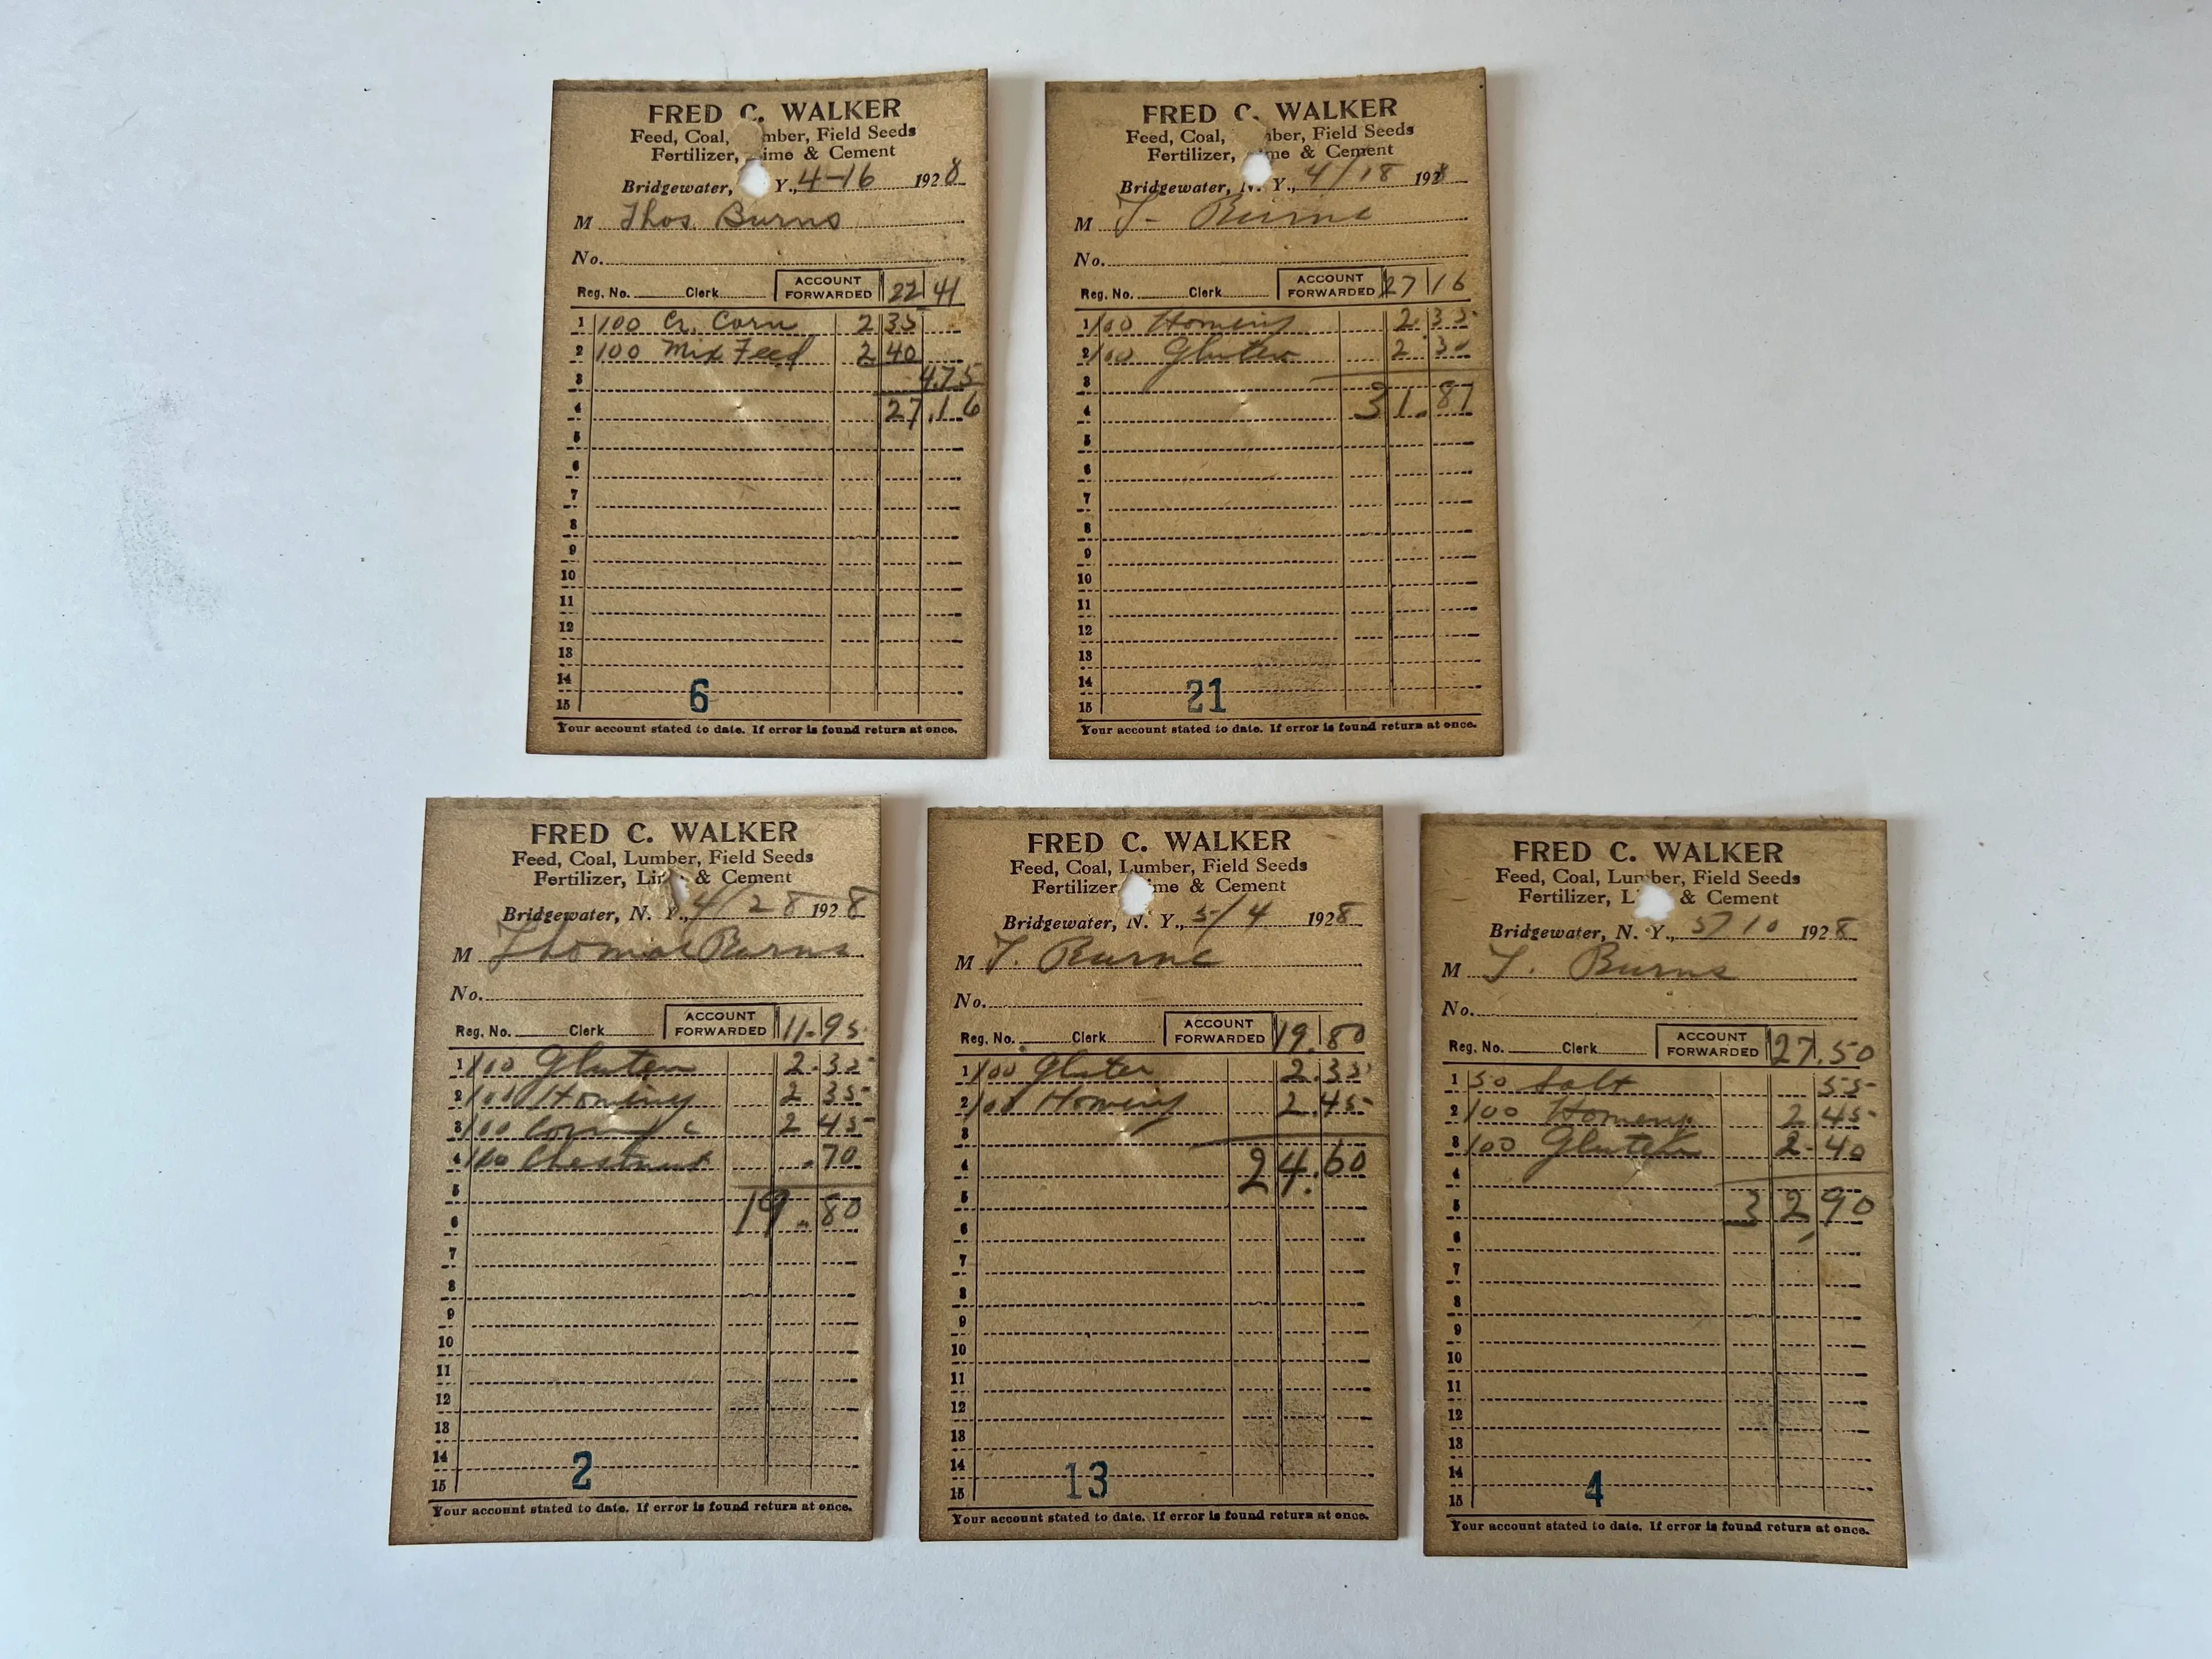 FRED C. WALKER
Feed, Coal, mber, Field Seeds
Fertilizer, ime & Cement
Bridgewater, Y., 4-16 1928
M Thos. Burns
No.
Reg. No. Clerk ACCOUNT FORWARDED 22 41
1 100 Cr. Corn 2 35
2 100 Mix Feed 2 40
3 4.75
4 27.16
5
6
7
8
9
10
11
12
13
14
15
6
Your account stated to date. If error is found return at once.
FRED C. WALKER
Feed, Coal, mber, Field Seeds
Fertilizer, me & Cement
Bridgewater, N. Y., 4/18 1928
M T- Burns
No.
Reg. No. Clerk ACCOUNT FORWARDED 27 16
1 100 Hominy 2.35
2 100 Gluten 2.30
3
4 31.81
5
6
7
8
9
10
11
12
13
14
15
21
Your account stated to date. If error is found return at once.
FRED C. WALKER
Feed, Coal, Lumber, Field Seeds
Fertilizer, Li & Cement
Bridgewater, N. Y., 4/28 1928
M Thomas Burns
No.
Reg. No. Clerk ACCOUNT FORWARDED 11.95
1 100 Gluten 2.35
2 100 Hominy 2 35
3 100 Corn 2 45
4 100 Chestnut .70
5
6 19.80
7
8
9
10
11
12
13
14
15
2
Your account stated to date. If error is found return at once.
FRED C. WALKER
Feed, Coal, Lumber, Field Seeds
Fertilizer, ime & Cement
Bridgewater, N. Y., 5/4 1928
M T. Burns
No.
Reg. No. Clerk ACCOUNT FORWARDED 19.80
1 100 Gluten 2.35
2 100 Hominy 2.45
3
4 24.60
5
6
7
8
9
10
11
12
13
14
15
13
Your account stated to date. If error is found return at once.
FRED C. WALKER
Feed, Coal, Lumber, Field Seeds
Fertilizer, L & Cement
Bridgewater, N. Y., 5/10 1928
M T. Burns
No.
Reg. No. Clerk ACCOUNT FORWARDED 27.50
1 50 Salt 55
2 100 Homeny 2.45
3 100 Gluten 2.40
4
5 32.90
6
7
8
9
10
11
12
13
14
15
4
Your account stated to date. If error is found return at once.